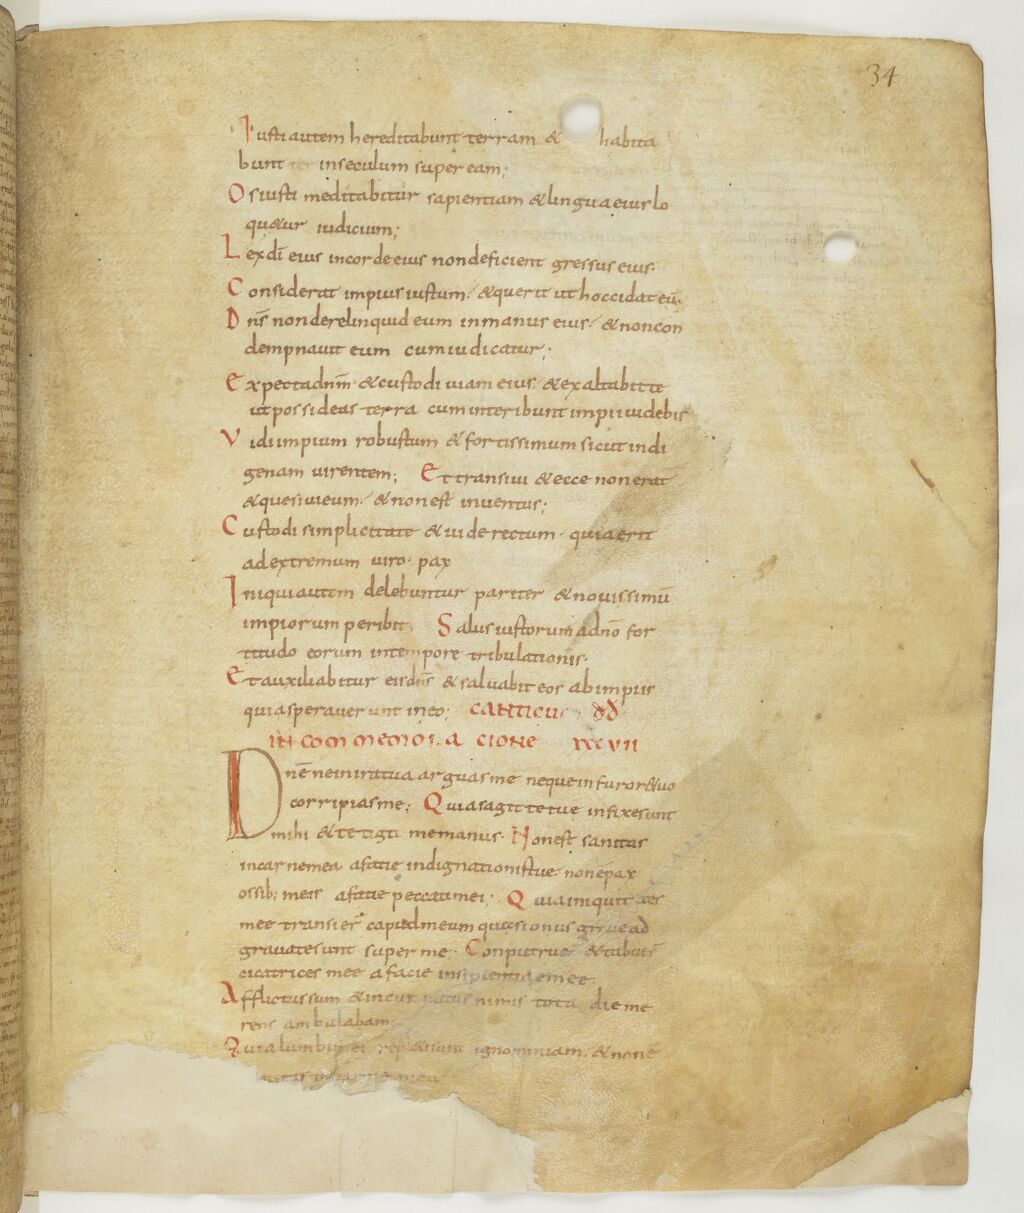 34
Iusti autem hereditabunt terram & habita
bunt in seculum super eam;
Os iusti meditabitur sapientiam & lingua eius lo
qu&ur iudicium;
Lex dī eius in corde eius non deficient gressus eius.
Considerat impius iustum. & querit ut hoccidat eū.
Dns̄ non derelinquid eum in manus eius. & non con
dempnauit eum cum iudicatur;
Expecta dnm̄ & custodi uiam eius. & exaltabit te
ut possideas terra cum interibunt impii uidebis
Vidi impium robustum & fortissimum sicut indi
genam uirentem; Et transiui & ecce non erat
& quesiui eum. & non est inuentus;
Custodi simplicitate & uide rectum. quia erit
ad extremum uiro. pax
Iniqui autem delebuntur pariter & nouissimū
impiorum peribit. Salus iustorum a dnō for
titudo eorum in tempore tribulationis.
Et auxiliabitur eis dns̄ & saluabit eos ab impiis
quia sperauerunt in eo; CANTICU DD
IN COMMEMORACIONE XXXVII
Dnē ne in ira tua arguas me neque in furor& uo
corripias me; Quia sagitte tue infixe sunt
mihi & tetigti me manus. Non est sanitas
in carne mea a fatie indignationis tue. non ē pax
ossib; meis a fatie peccati mei. Quia iniquitates
mee
gravate sunt super me. Conputrue &
cicatrices mee a facie insipientiae mee.
Afflictus sum & nimis tota die me
rens ambulabam
Quia lumbi mei ignominiam. & non ē